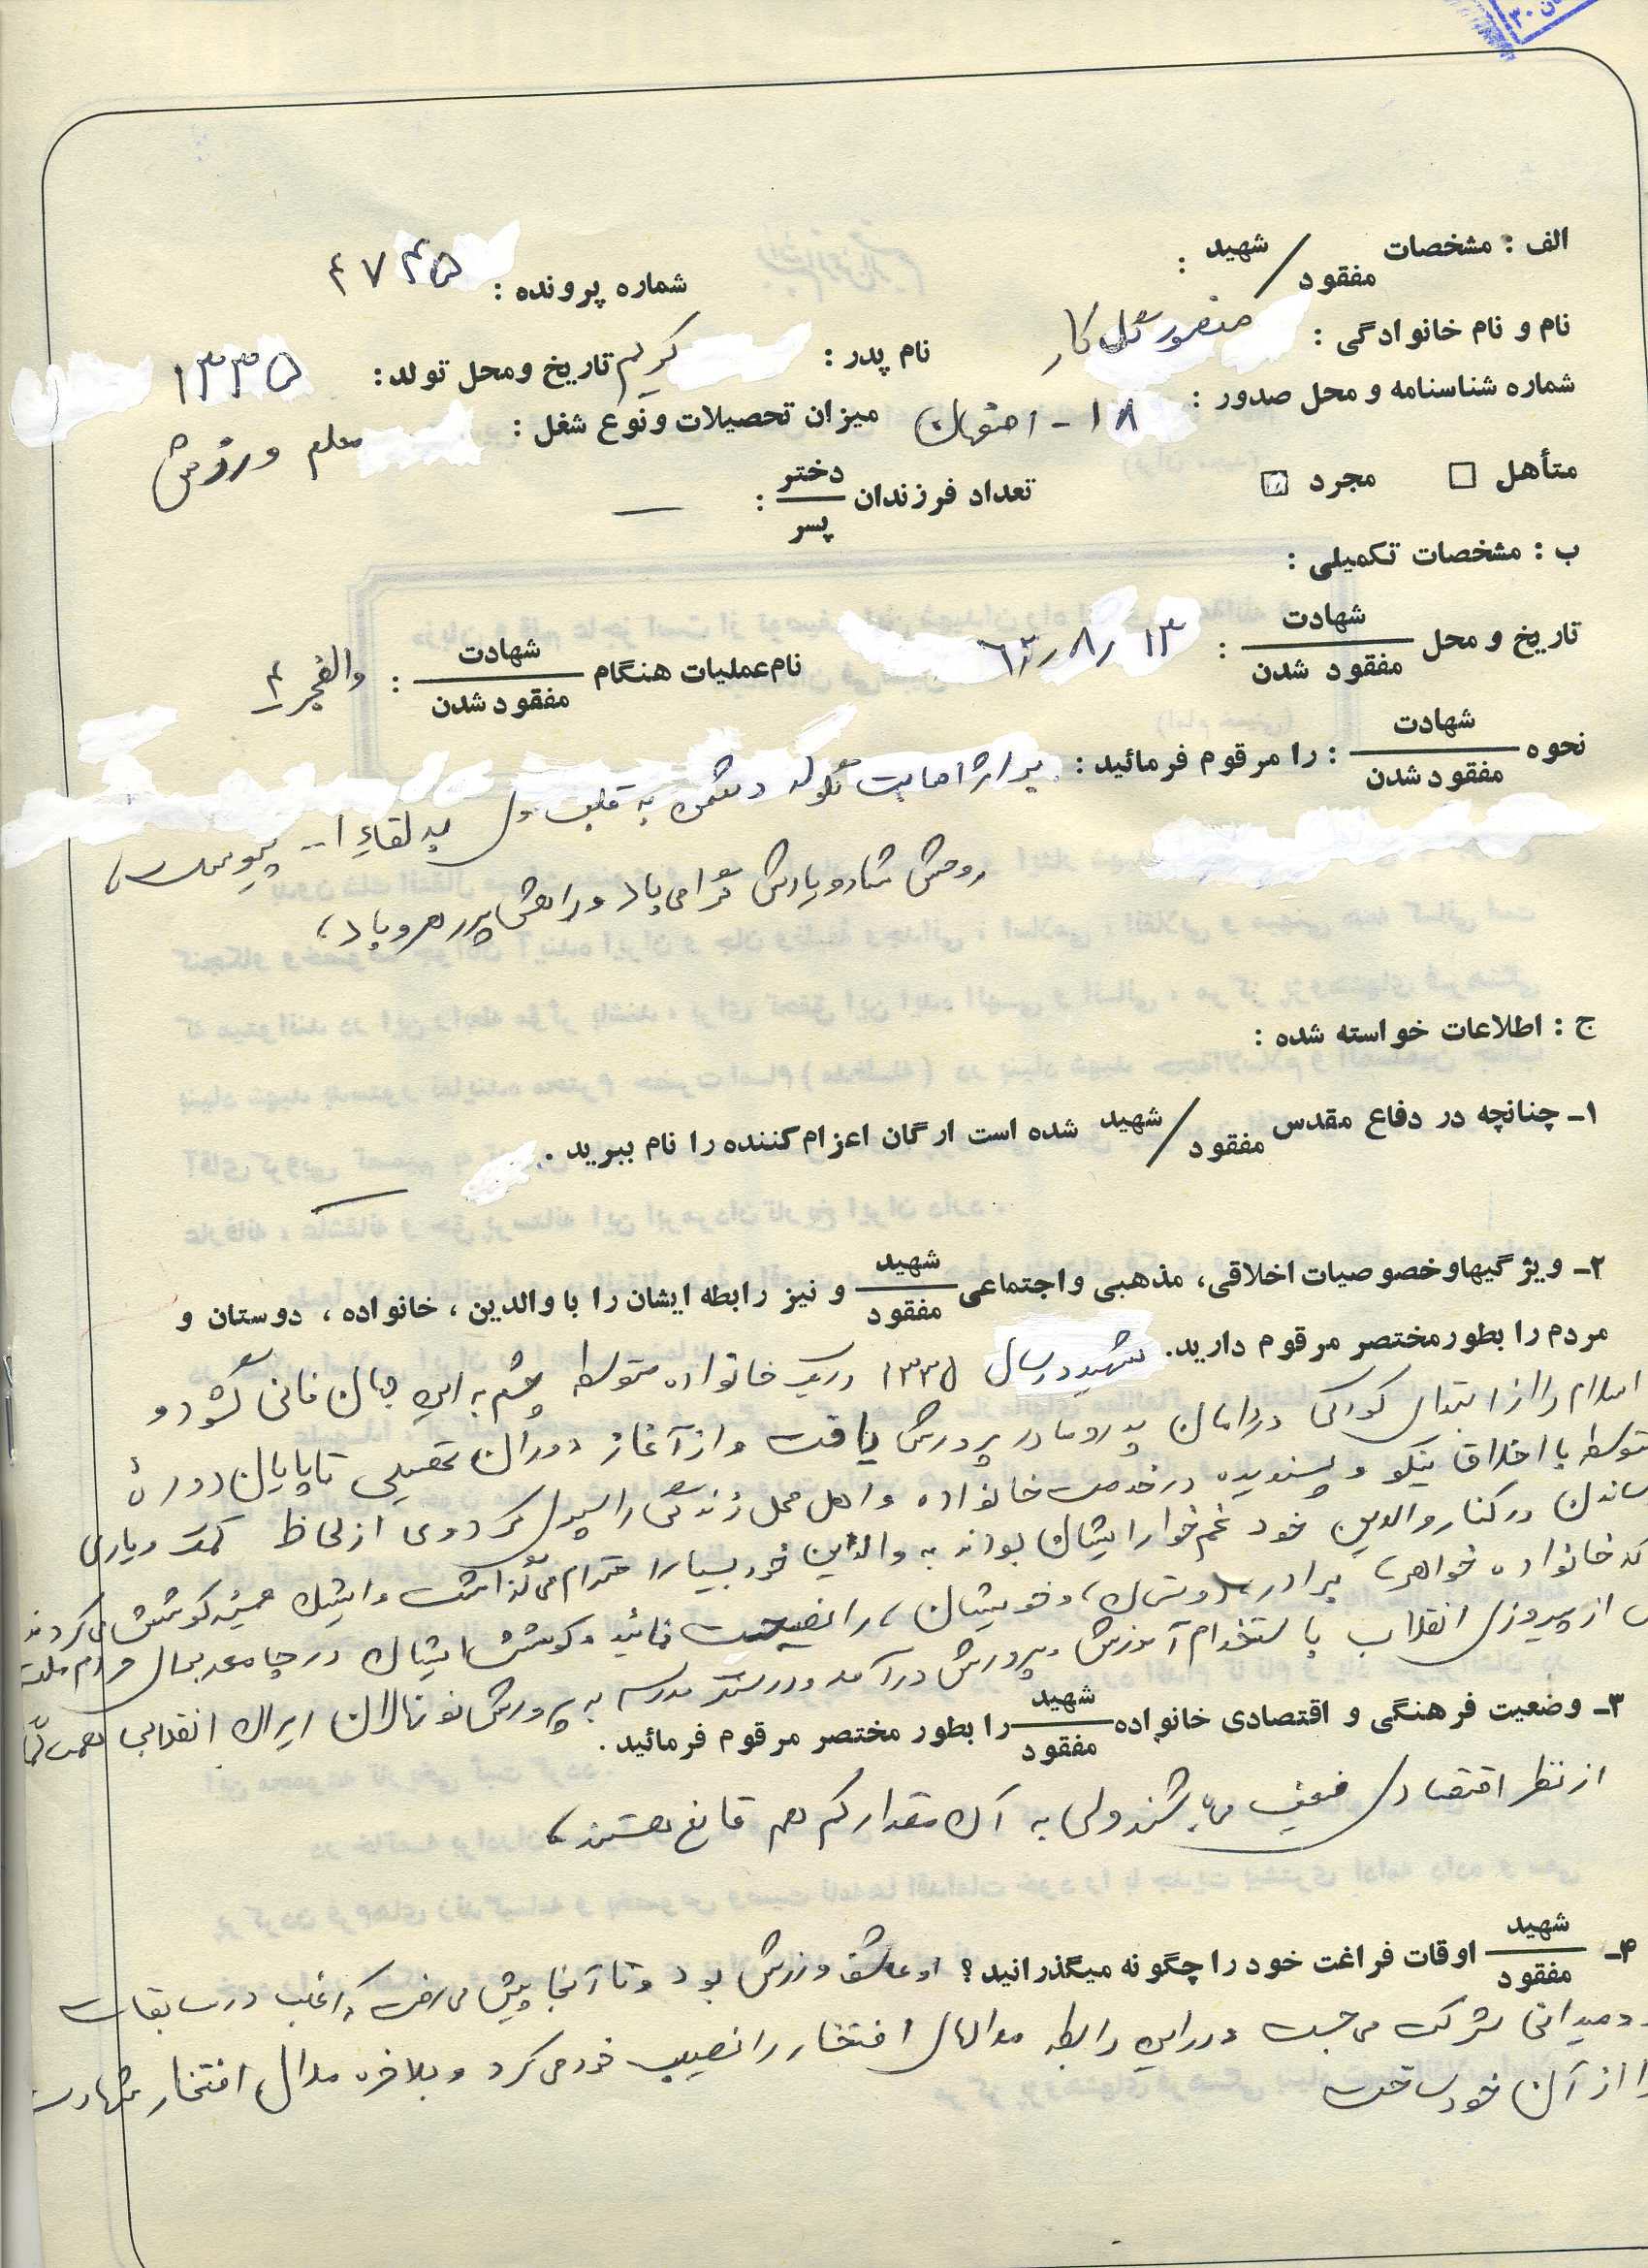 الف : مشخصات شهید / مفقود :
شماره پرونده : ۴۷۴۵
نام و نام خانوادگی : منصور گل کار نام پدر : کریم تاریخ و محل تولد : ۱۳۳۵
شماره شناسنامه و محل صدور : ۱۸ - اصفهان میزان تحصیلات و نوع شغل : معلم ورزش
متأهل □ مجرد □ تعداد فرزندان دختر / پسر : —
ب : مشخصات تکمیلی :
تاریخ و محل شهادت / مفقود شدن : ۱۳ر۸ر۶۲ نام عملیات هنگام شهادت / مفقود شدن : والفجر ۴
نحوه شهادت / مفقود شدن : را مرقوم فرمائید : بر اثر اصابت گلوله دشمن به قلب وی به لقاء ا... پیوست،
روحش شاد و یادش گرامی باد و راهش پر رهرو باد،
ج : اطلاعات خواسته شده :
۱ـ چنانچه در دفاع مقدس شهید / مفقود شده است ارگان اعزام کننده را نام ببرید .
—
۲ـ ویژگیها و خصوصیات اخلاقی، مذهبی و اجتماعی شهید / مفقود و نیز رابطه ایشان را با والدین ، خانواده ، دوستان و
مردم را بطور مختصر مرقوم دارید. شهید در سال ۱۳۳۵ در یک خانواده متوسط چشم به این جهان فانی گشود و
اسلام را از ابتدای کودکی در دامان پدر و مادر پرورش یافت و از آغاز دوران تحصیلی تا پایان دورهٔ
متوسطه با اخلاق نیکو و پسندیده در خدمت خانواده و اهل محل زندگی را سپری کرد وی از لحاظ کمک و یاری
در کنار والدین خود غم خوار ایشان بودند به والدین خود بسیار احترام می گذاشت و ایشان همیشه کوشش می کردند
که خانواده خواهر، برادر، دوستان، و خویشان، را نصیحت نمائید و کوشش ایشان در جامعه
از پیروزی انقلاب با استخدام آموزش و پرورش در آمد و در مدرسه به پرورش نونهالان ایران انقلابی
۳ـ وضعیت فرهنگی و اقتصادی خانواده شهید / مفقود را بطور مختصر مرقوم فرمائید .
از نظر اقتصادی ضعیف می باشند ولی به آن مقدار کم هم قانع هستند،
۴ـ شهید / مفقود اوقات فراغت خود را چگونه میگذرانید ؟ او عاشق ورزش بود و تا آنجا پیش می رفت که اغلب در مسابقات
و میدانی شرکت می جست و در این رابطه مدالهای افتخار را نصیب خود می کرد و بلاخره مدال افتخار شهادت
را از آن خود ساخت